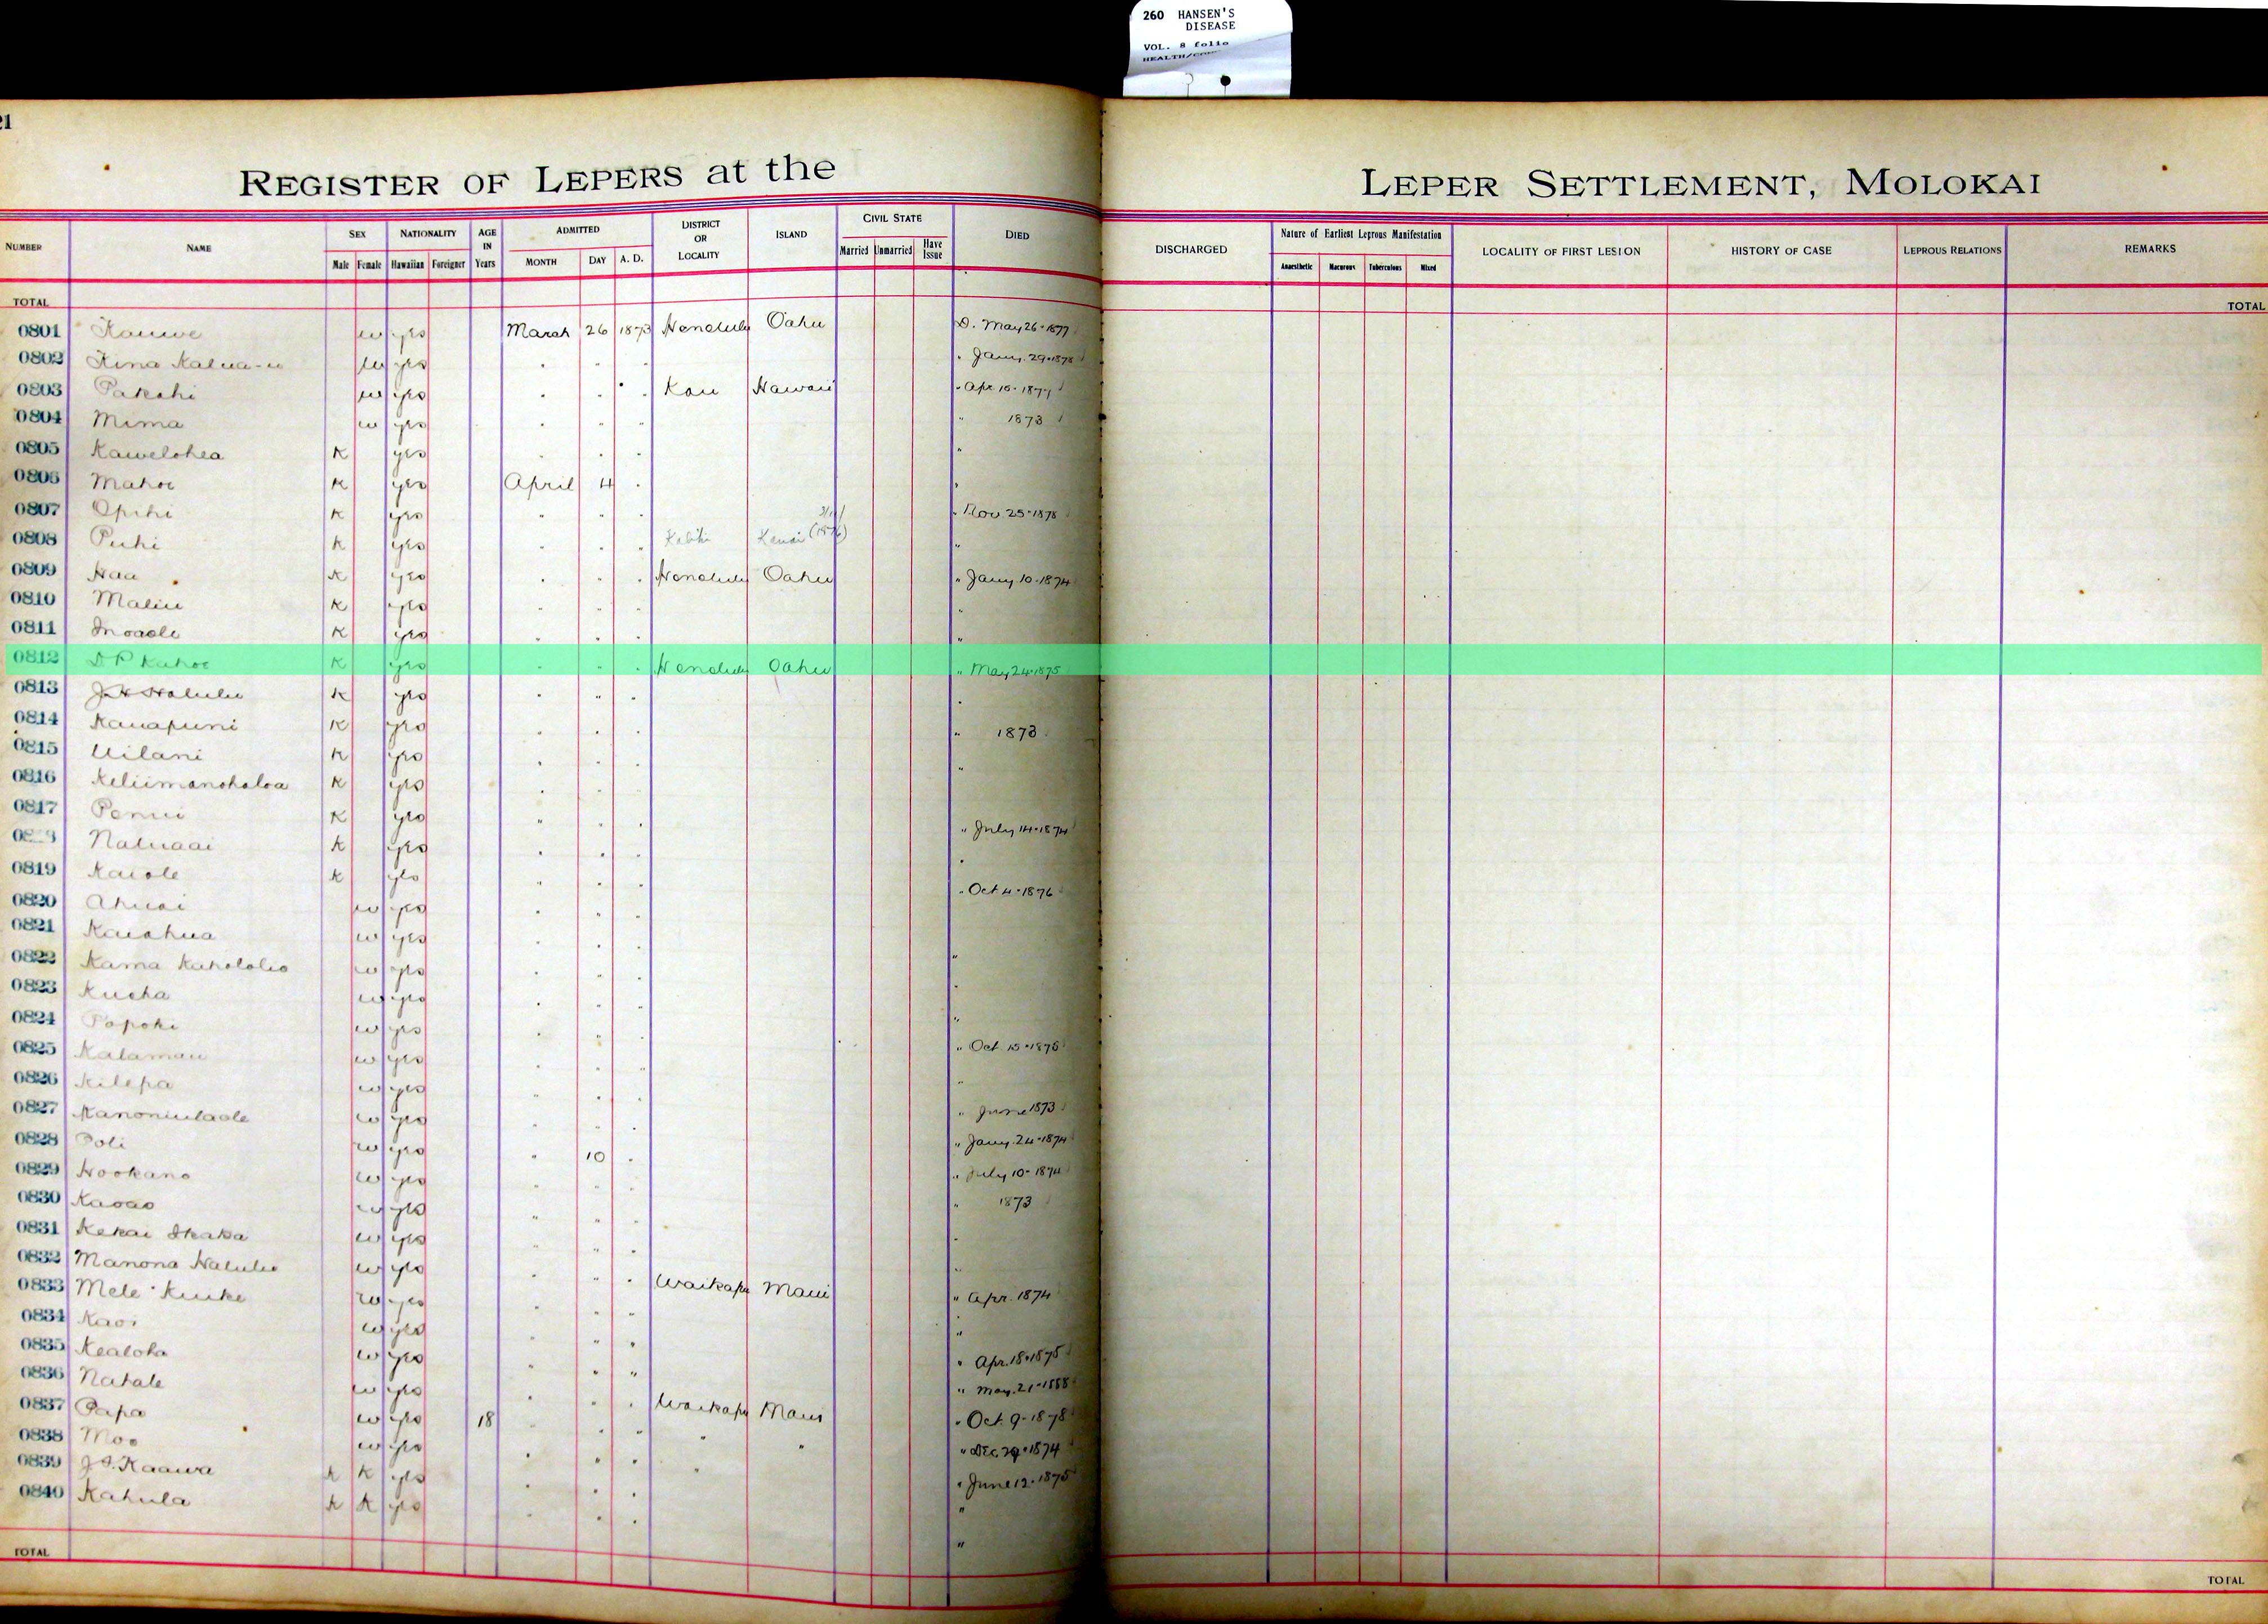 260 HANSEN'S
DISEASE
VOL. 8 folio
21
REGISTER OF LEPERS at the LEPER SETTLEMENT, MOLOKAI
NUMBER NAME SEX Male Female NATIONALITY Hawaiian Foreigner AGE IN Years ADMITTED MONTH DAY A. D. DISTRICT OR LOCALITY ISLAND CIVIL STATE Married Unmarried Have Issue DIED DISCHARGED Nature of Earliest Leprous Manifestation Anaesthetic Macurous Tuberculous Mixed LOCALITY OF FIRST LESION HISTORY OF CASE LEPROUS RELATIONS REMARKS
TOTAL TOTAL
0801 Kauwe w yes March 26 1873 Honolulu Oahu D. May 26-1877
0802 Kina w yes " " " " Jany. 29-1878
0803 Pakahi w yes " " " Kau Hawaii " Apr 10-1877
0804 Mima w yes " " " " 1873
0805 Kawelohea K yes " " " "
0806 Mahoe K yes April 4 " "
0807 Opihi K yes " " " " Nov 25-1878
0808 Puhi K yes " " " Kauai "
0809 Haa K yes " " " Honolulu Oahu " Jany 10-1874
0810 Maliu K yes " " " "
0811 K yes " " " "
0812 D P Kahoe K yes " " " Honolulu Oahu " May 24-1875
0813 J H Halulu K yes " " " "
0814 Kauapuni K yes " " " " 1873
0815 Uilani K yes " " " "
0816 Keliimanohaloa K yes " " "
0817 K yes " " " " July 14-1874
Naluaai K yes " " " "
0819 Kaiole K yes " " " " Oct 4-1876
0820 Ahuai w yes " " "
0821 Kaiahua w yes " " " "
0822 Kama Kahololio w yes " " " "
0823 Kueha w yes " " " "
0824 Popoki w yes " " "
0825 Kalamau w yes " " " " Oct. 15-1878
0826 Kilepa w yes " " " "
0827 w yes " " " " June 1873
0828 Poli w yes " 10 " " Jany. 24-1874
0829 Hookano w yes " " " " July 10-1874
0830 Kaoao w yes " " " " 1873
0831 Kekai w yes " " " "
0832 Manona Halulu w yes " " " Waikapu Maui "
0833 Mele w yes " " " " Apr. 1874
0834 Kaoi w yes " " " "
0835 Kealoha w yes " " " " Apr. 18-1875
0836 Nahale w yes " " " Waikapu Maui " May. 21-1888
0837 Papa w yes 18 " " " " " " Oct. 9-1878
0838 Moo w yes " " " " " Dec 29-1874
0839 J. S. Kaawa K K yes " " " " June 12-1875
0840 Kahula K K yes " " " "
TOTAL TOTAL